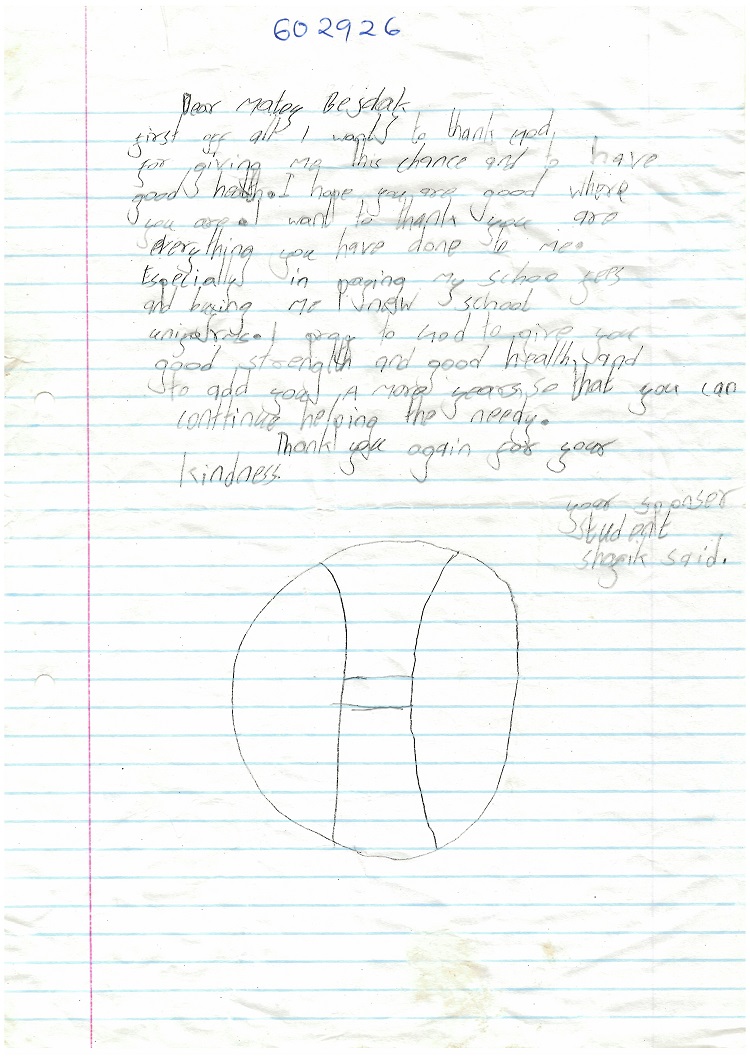 602926
Dear Matey Bejdak
first off all I wants to thank God
for giving me this chance and to have
good health. I hope you are good where
you are. I want to thank you are
everything you have done to me.
Especially in paying my schoo fees
and buying me new school
uniforms. I pray to God to give you
good strength and good health and
to add you A more years so that you can
continue helping the needy.
Thank you again for your
kindness.
your sponser
student
said.